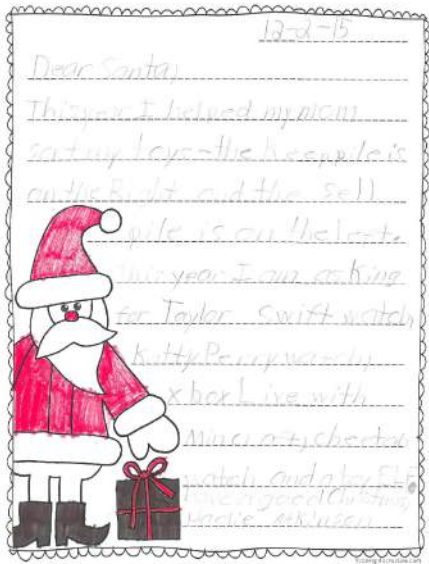 12-2-15
Dear Santa,
This year I helped my mom
sort my toys - the Keep pile is
on the Right and the sell
pile is on the left.
this year I am asking
for Taylor Swift watch,
Katty Perry watch,
x box Live with
Mincraft, cheetah
watch and a toy Elf
Have a good Christmas,